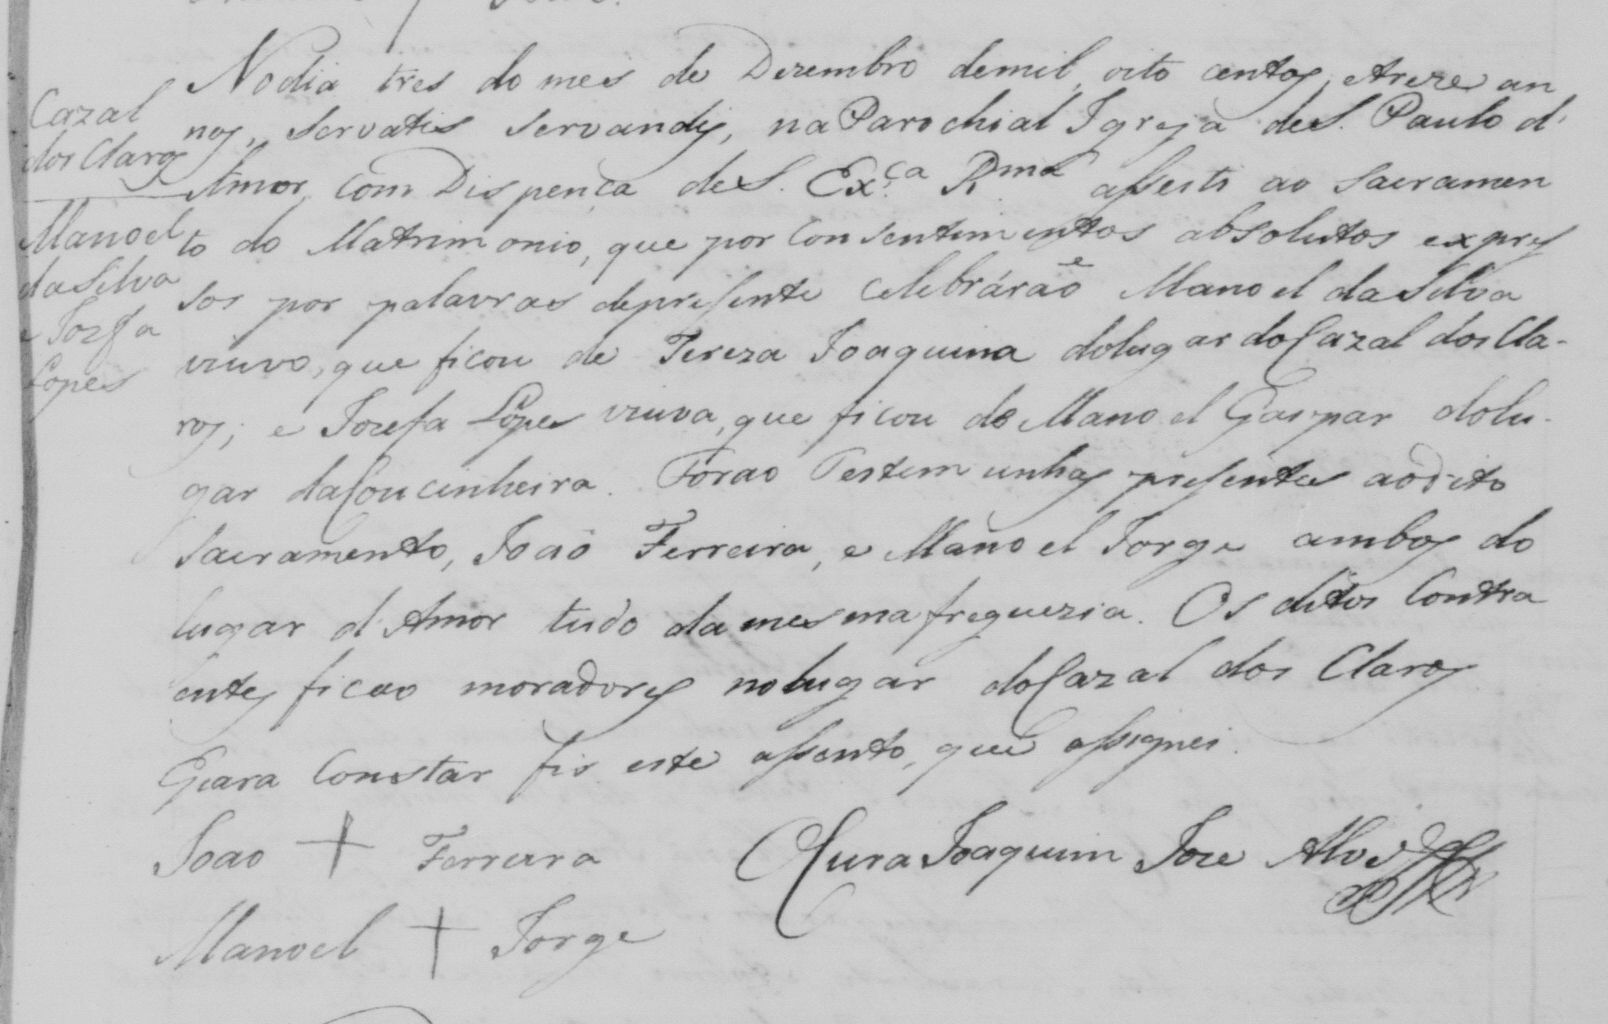 Cazal
dos Claros
Manoel
da Silva
e Jozefa
Lopes
No dia tres do mes de Dezembro de mil, oito centos, e treze an
nos, servatis servandis, na Parochial Igreja de S. Paulo d'
Amor, com Dispença de S. Ex.ca R.ma assesti ao sacramen
to do Matrimonio, que por consentimentos absolutos expres
sos por palavras de presente celebrárão e Manoel da Silva
viuvo, que ficou de Tereza Joaquina do lugar do Cazal dos Cla-
ros; e Jozefa Lopes viuva, que ficou de Manoel Gaspar do lu-
gar da Coucinheira. Forao Testemunhas presentes ao dito
sacramento, João Ferreira, e Manoel Jorge ambos do
lugar d'Amor tudo da mesma freguezia. Os ditos Contra
entes ficao moradores no lugar do Cazal dos Claros
E para Constar fis este assento, que assignei.
Joao + Ferreira
O Cura Joaquim Joze Alves
Manoel + Jorge